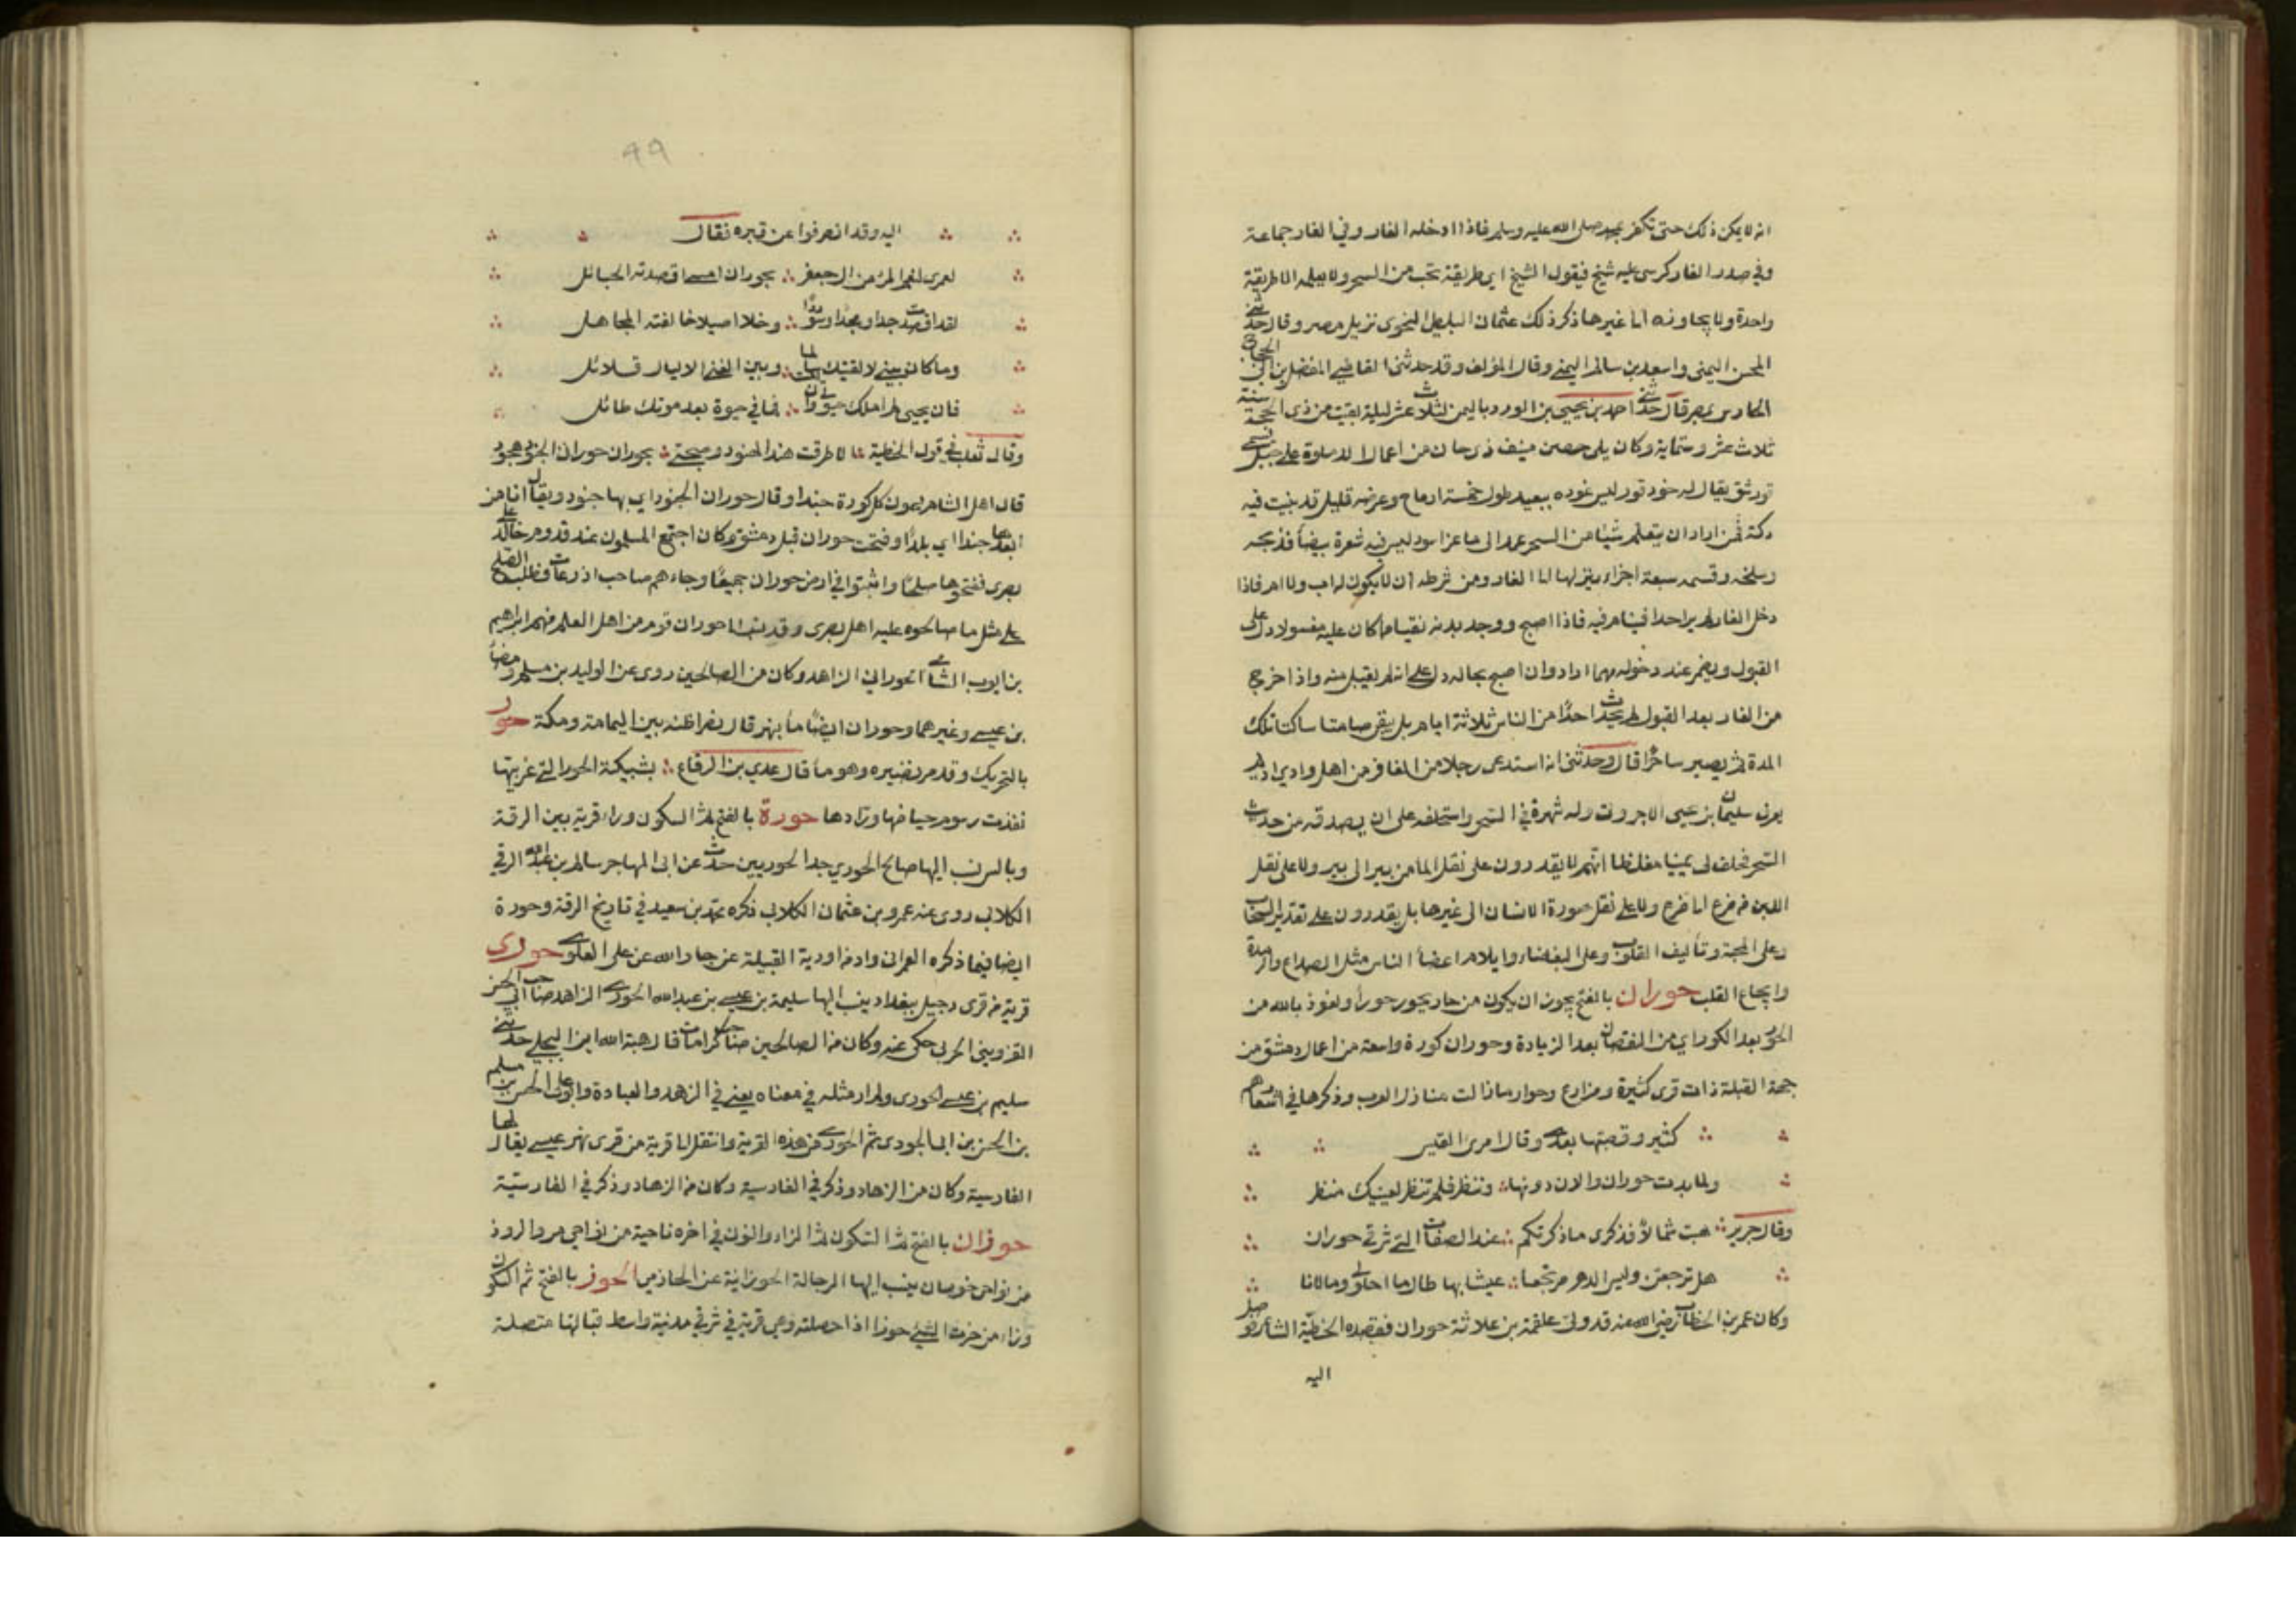 انه لا يمكن ذلك حتى تكفر بمحمد صلى الله عليه وسلم فاذا ادخله الغار وفي الغار جماعة
وفي صدر الغار كرسى عليه شيخ فيقول الشيخ اي طريقة تحب من السحر ولا يعلمه الا طريقة
واحدة ولا يجاوزه الى غيرها ذكر ذلك عثمان البلطى النحوى نزيل مصر وقال حدثنى
المحسن اليمنى واسعد بن سالم اليمنى وقال المؤلف وقد حدثنى القاضي المفضل بن ابى الحجاج
بمصر قال حدثنى احمد بن يحيى بن الورد باليمن لثلاث عشر ليلة بقيت من ذى الحجة سنة
ثلاث عشر وستماية وكان يلى حصن منيف ذى جان من اعمال الدملوة على جبل يسمى
قور شق يقال له خود قور ليس غوره ببعيد طول خمسة ارماح وعرضه قليل قد بنيت فيه
دكة فمن اراد ان يتعلم شيئا من السحر عمد الى ماعز اسود ليس فيه شعرة بيضا فذبحه
وسلخه وقسمه سبعة اجزاء ينزلها الى الغار ومن شرطه ان لا يكون له اب ولا ام فاذا
دخل الغار لم ير احدا فينام فيه فاذا اصبح ووجد بدنه نقيا مما كان عليه مغسولا دل على
القبول ويضمر عند دخوله مهما اراد وان اصبح بحاله دل على انه لم يقبل منه واذا خرج
من الغار بعد القبول لم يحدث احدا من الناس ثلاثة ايام بل يبقى صامتا ساكتا تلك
المدة ثم يصير ساحرا قال وحدثنى انه استدعى رجلا من المعافر من اهل وادي اديم
يعرف سليمان بن يحيى الاجروت وله شهرة في السحر واستحلفه على ان يصدقه من حديث
السحر فحلف لى يمينا مغلظا انهم لا يقدرون على نقل الما من بير الى بير ولا على نقل
اللبن من ضرع الى ضرع ولا على نقل صورة الانسان الى غيرها بل يقدرون على تفريق السحاب
وعلى المحبة وتأليف القلوب وعلى البغضاء وايلام اعضا الناس مثل الصداع والرمد
وايجاع القلب حوران بالفتح يجوز ان يكون من حار يحور حورا ونعوذ بالله من
الحور بعد الكور اي من النقصان بعد الزيادة وحوران كورة واسعة من اعمال دمشق من
جهة القبلة ذات قرى كثيرة ومزارع وحرار ما زالت منازل العرب وذكرها في اشعارهم
كثير وقصبتها بصرى وقال امرئ القيس
ولما بدت حوران والال دونها نظرت فلم تنظر بعينيك منظر
وقال جرير هبت شمالا فذكرى ما ذكرتكم عند الصفاة التى شرقى حوران
هل ترجعن وليس الدهر مرتجعا عيشا بها طالما احلولى وما لانا
وكان عمر بن الخطاب رضى الله عنه قد ولى علقمة بن علاثة حوران فقصده الحطيئة الشاعر فوصل
اليه
99
اليه وقد انصرفوا عن قبره فقال
لعمرى لنعم المرء من ال جعفر بحوران امسى اقصدته الحبائل
لقد اقصدت جدا ومجدا وسوددا وحلما اصيلا خالفته المجاهل
وما كان بينى لو لقيتك سالما وبين الغنى الا ليال قلائل
فان تحيى لم املل حيوتى وان تمت فما في حيوة بعد موتك طائل
وقال ثعلب في قول الحطيئة الا طرقت هند الهنود وصحبتى بحوران حوران الجنود هجود
قال اهل الشام يسمون كل كورة جندا وقال حوران الجنود اي بها جنود ويقال انا من
جندا اي بلدا وفتحت حوران قبل دمشق وكان اجتمع المسلمون عند قدوم خالد على
بصرى ففتحوها صلحا وانبثوا في ارض حوران جميعا وجاءهم صاحب اذرعات فطلب الصلح
على مثل ما صالحوه عليه اهل بصرى وقد نسب الى حوران قوم من اهل العلم منهم ابراهيم
بن ايوب الشامى الحورانى الزاهد وكان من الصالحين روى عن الوليد بن مسلم ومضا
بن عيسى وغيرهما وحوران ايضا ماء بنجد قال نصر اظنه بين اليمامة ومكة حور
بالتحريك وقد مر تفسيره وهو ماء قال عدي بن الرقاع بشبيكة الحور التى غربيها
فقدت رسوم حياضها ورادها حورة بالفتح ثم السكون وراء قرية بين الرقة
وبالس نسب اليها صالح الحورى جد الحوريين حدث عن ابى المهاجر سالم بن عبد الله الرقى
الكلابى روى عنه عمرو بن عثمان الكلابى ذكره محمد بن سعيد في تاريخ الرقة وحورة
ايضا فيما ذكره العمرانى واد من اودية القبلية عن جار الله عن على العلوى حورى
قرية من قرى دجيل ببغداد ينسب اليها سليمة بن عيسى بن عبد الله الحورى الزاهد صاحب ابى الحسن
القزوينى الحربى حكى عنه وكان من الصالحين صاحب كرامات قال هبة الله ابن المجلى حدثنى
سليم بن عيسى الحورى ولم ار مثله في معناه يعنى في الزهد والعبادة وابو على الحسن بن مسلم
بن الحسن بن ابى الجود ثم الحورى من هذه القرية وانتقل الى قرية من قرى نهر عيسى يقال لها
الفارسية وكان من الزهاد وذكر في الفارسية وكان من الزهاد وذكر في الفارسية
حوزان بالفتح ثم السكون ثم الزاء والنون في اخره ناحية من نواحى مرو الروذ
من نواحى خرسان ينسب اليها الرجالة الحوزانية عن الحازمى الحوز بالفتح ثم السكون
وزاء من حزت الشئ حوزا اذا حصلته وهى قرية في شرقى مدينة واسط قبالتها متصلة